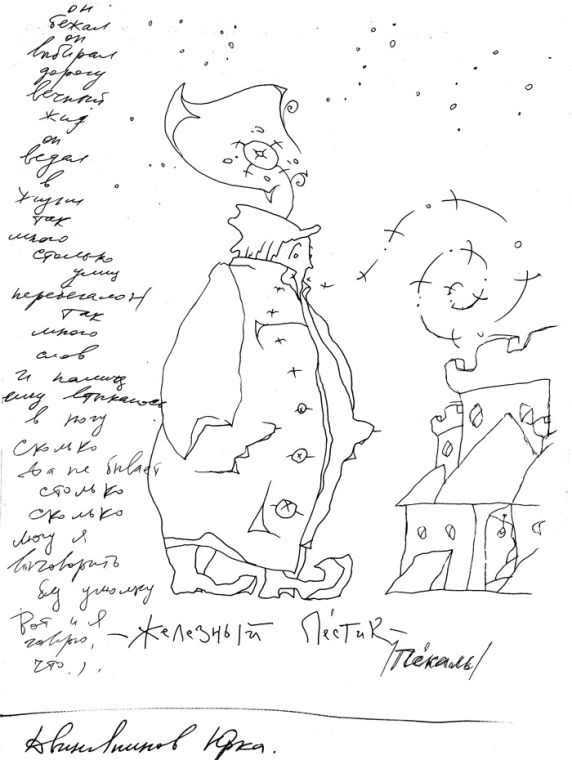 он
бежал
он
выбирал
дорогу
вечный
жид
он
ведал
в
жизни
так
много
столько
улиц
перебегал он
так
много
слов
и
ему втыкалось
в ногу
сколько
да не бывает
столько
сколько
могу я
выговорить
без умолку
Вот и я
говорю,
что...
— Железный Пёстик —
/Пекаль/
Юрка.